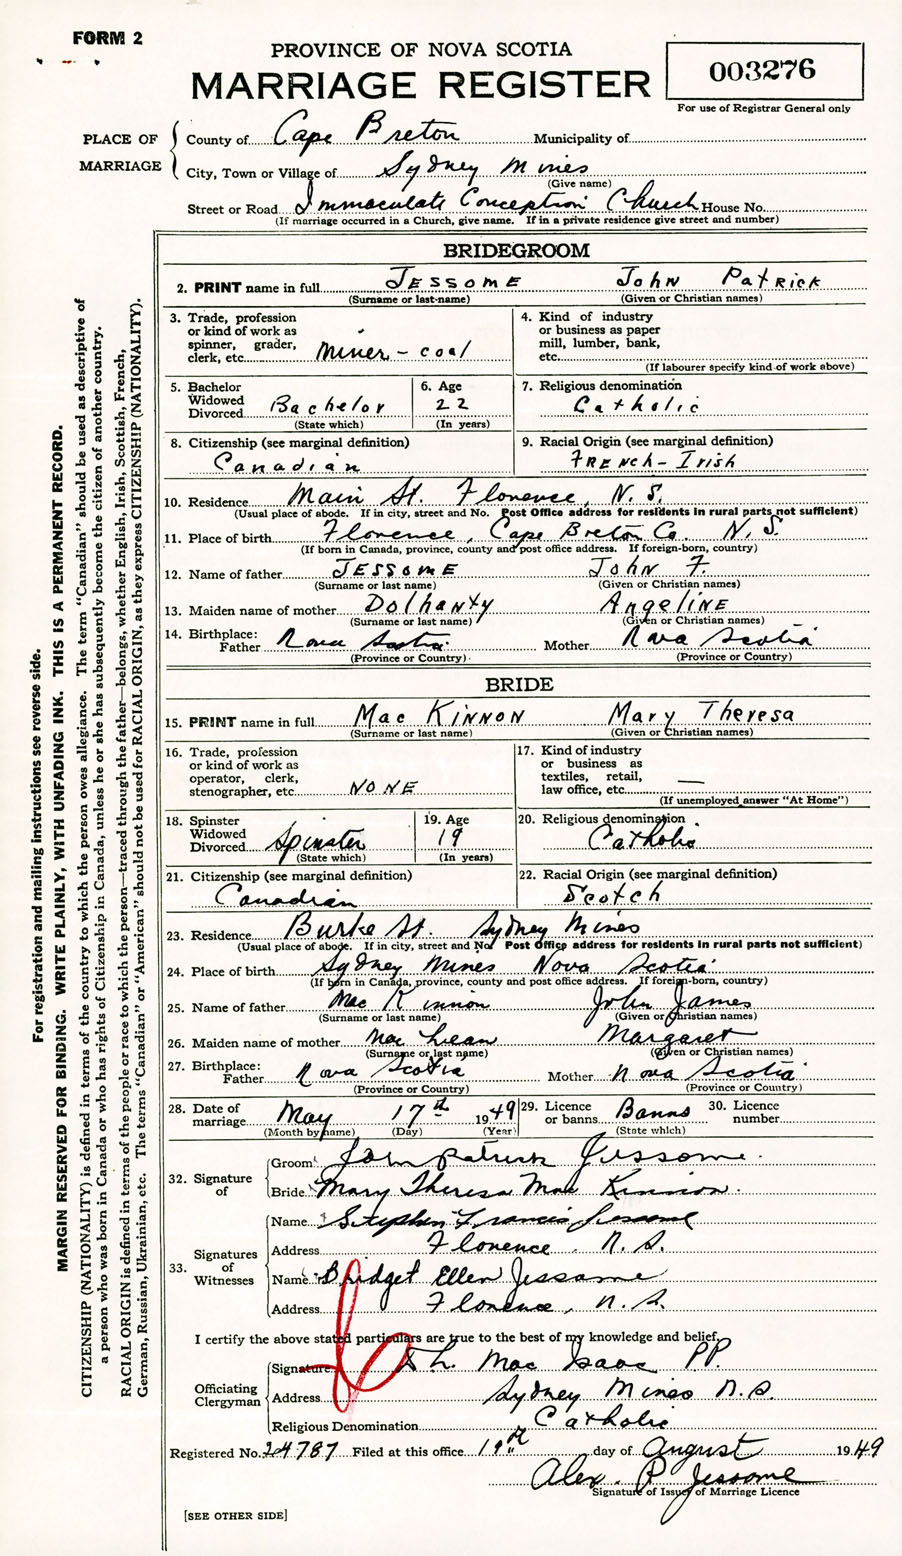 FORM 2
PROVINCE OF NOVA SCOTIA
MARRIAGE REGISTER
003276
For use of Registrar General only
PLACE OF MARRIAGE
County of Cape Breton Municipality of
City, Town or Village of Sydney Mines
(Give name)
Street or Road Immaculate Conception Church House No.
(If marriage occurred in a Church, give name. If in a private residence give street and number)
BRIDEGROOM
2. PRINT name in full JESSOME John Patrick
(Surname or last-name) (Given or Christian names)
3. Trade, profession or kind of work as spinner, grader, clerk, etc. Miner - coal
4. Kind of industry or business as paper mill, lumber, bank, etc.
(If labourer specify kind of work above)
5. Bachelor Widowed Divorced Bachelor
(State which)
6. Age 22
(In years)
7. Religious denomination Catholic
8. Citizenship (see marginal definition) Canadian
9. Racial Origin (see marginal definition) FRENCH - Irish
10. Residence Main St. Florence, N.S.
(Usual place of abode. If in city, street and No. Post Office address for residents in rural parts not sufficient)
11. Place of birth Florence, Cape Breton Co. N.S.
(If born in Canada, province, county and post office address. If foreign-born, country)
12. Name of father JESSOME John F.
(Surname or last name) (Given or Christian names)
13. Maiden name of mother Dolhanty Angeline
(Surname or last name) (Given or Christian names)
14. Birthplace: Father Nova Scotia Mother Nova Scotia
(Province or Country) (Province or Country)
BRIDE
15. PRINT name in full Mac Kinnon Mary Theresa
(Surname or last name) (Given or Christian names)
16. Trade, profession or kind of work as operator, clerk, stenographer, etc. NONE
17. Kind of industry or business as textiles, retail, law office, etc. —
(If unemployed answer "At Home")
18. Spinster Widowed Divorced Spinster
(State which)
19. Age 19
(In years)
20. Religious denomination Catholic
21. Citizenship (see marginal definition) Canadian
22. Racial Origin (see marginal definition) Scotch
23. Residence Burke St. Sydney Mines
(Usual place of abode. If in city, street and No. Post Office address for residents in rural parts not sufficient)
24. Place of birth Sydney Mines Nova Scotia
(If born in Canada, province, county and post office address. If foreign-born, country)
25. Name of father Mac Kinnon John James
(Surname or last name) (Given or Christian names)
26. Maiden name of mother Mac Lean Margaret
(Surname or last name) (Given or Christian names)
27. Birthplace: Father Nova Scotia Mother Nova Scotia
(Province or Country) (Province or Country)
28. Date of marriage May 17th 1949
(Month by name) (Day) (Year)
29. Licence or banns Banns
(State which)
30. Licence number
32. Signature of
Groom John Patrick Jessome.
Bride Mary Theresa Mac Kinnon.
33. Signatures of Witnesses
Name Stephen Francis Jessome
Address Florence, N.S.
Name Bridget Ellen Jessome
Address Florence, N.S.
I certify the above stated particulars are true to the best of my knowledge and belief.
Officiating Clergyman
Signature Mac Isaac P.P.
Address Sydney Mines N.S.
Religious Denomination Catholic
Registered No. 24787 Filed at this office 19th day of August 1949
Alex. P Jessome
Signature of Issuer of Marriage Licence
[SEE OTHER SIDE]
For registration and mailing instructions see reverse side.
MARGIN RESERVED FOR BINDING. WRITE PLAINLY, WITH UNFADING INK. THIS IS A PERMANENT RECORD.
CITIZENSHIP (NATIONALITY) is defined in terms of the country to which the person owes allegiance. The term "Canadian" should be used as descriptive of
a person who was born in Canada or who has rights of Citizenship in Canada, unless he or she has subsequently become the citizen of another country.
RACIAL ORIGIN is defined in terms of the people or race to which the person—traced through the father—belongs, whether English, Irish, Scottish, French,
German, Russian, Ukrainian, etc. The terms "Canadian" or "American" should not be used for RACIAL ORIGIN, as they express CITIZENSHIP (NATIONALITY).